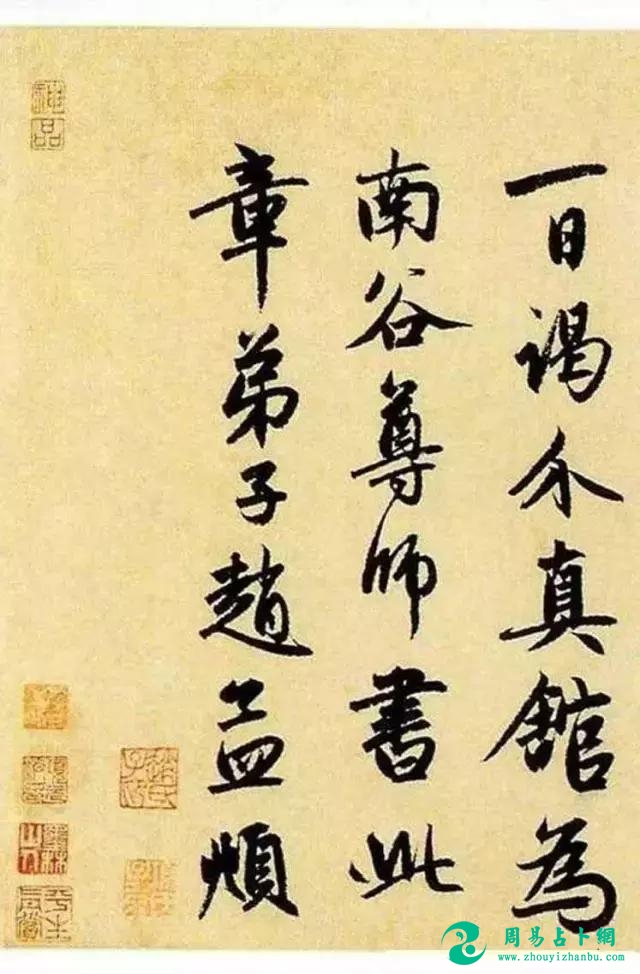 一日谒介真館為
南谷尊師書此
章弟子趙孟頫
神品
趙氏子昂
周易占卜網
www.zhouyizhanbu.com